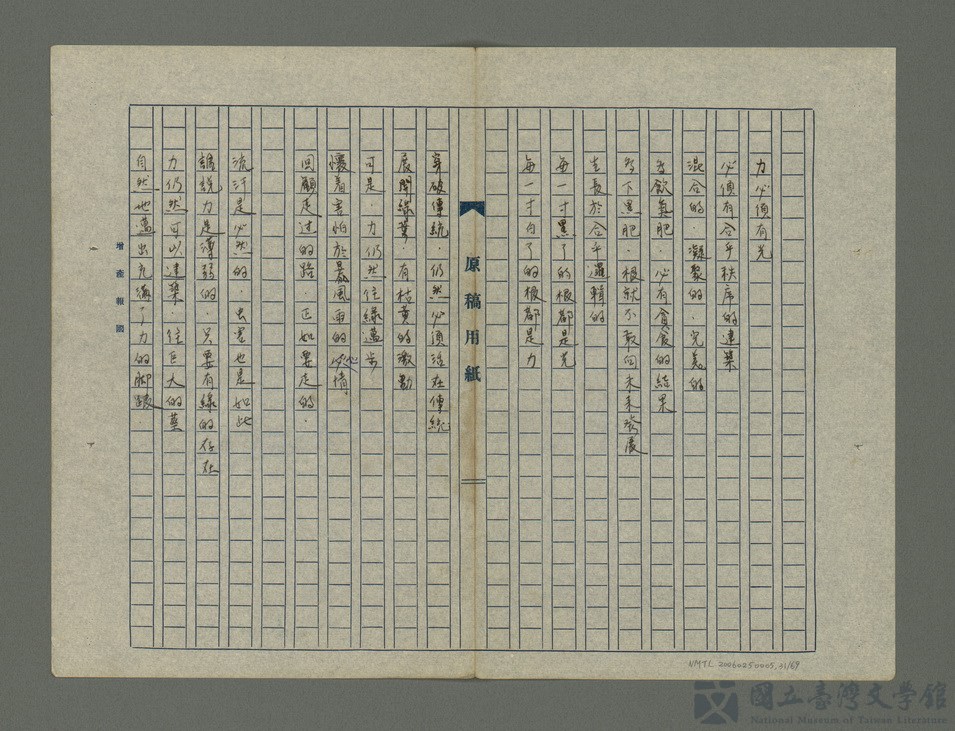 力必須有光
必須有合乎秩序的建築
混合的．凝聚的．完美的
為飲氮肥．必有貪食的結果
當下黑肥．根就不敢向未來發展
生長於合乎邏輯的
每一寸黑了的根都是光
每一寸白了的根都是力
原稿用紙
穿破傳統．仍然必須活在傳統
展開綠葉．有枯黃的激勵
可是．力仍然往綠邁步
懷着害怕於暴風雨的心情
回顧走過的路．正如要走的．
流汗是必然的．虫害也是如此
誰說力是薄弱的．只要有綠的存在
力仍然可以建築．往巨大的葉
自然地邁出充滿了力的腳踱．
增產報國
NMTL 20060250005.31/69
國立臺灣文學館
National Museum of Taiwan Literature